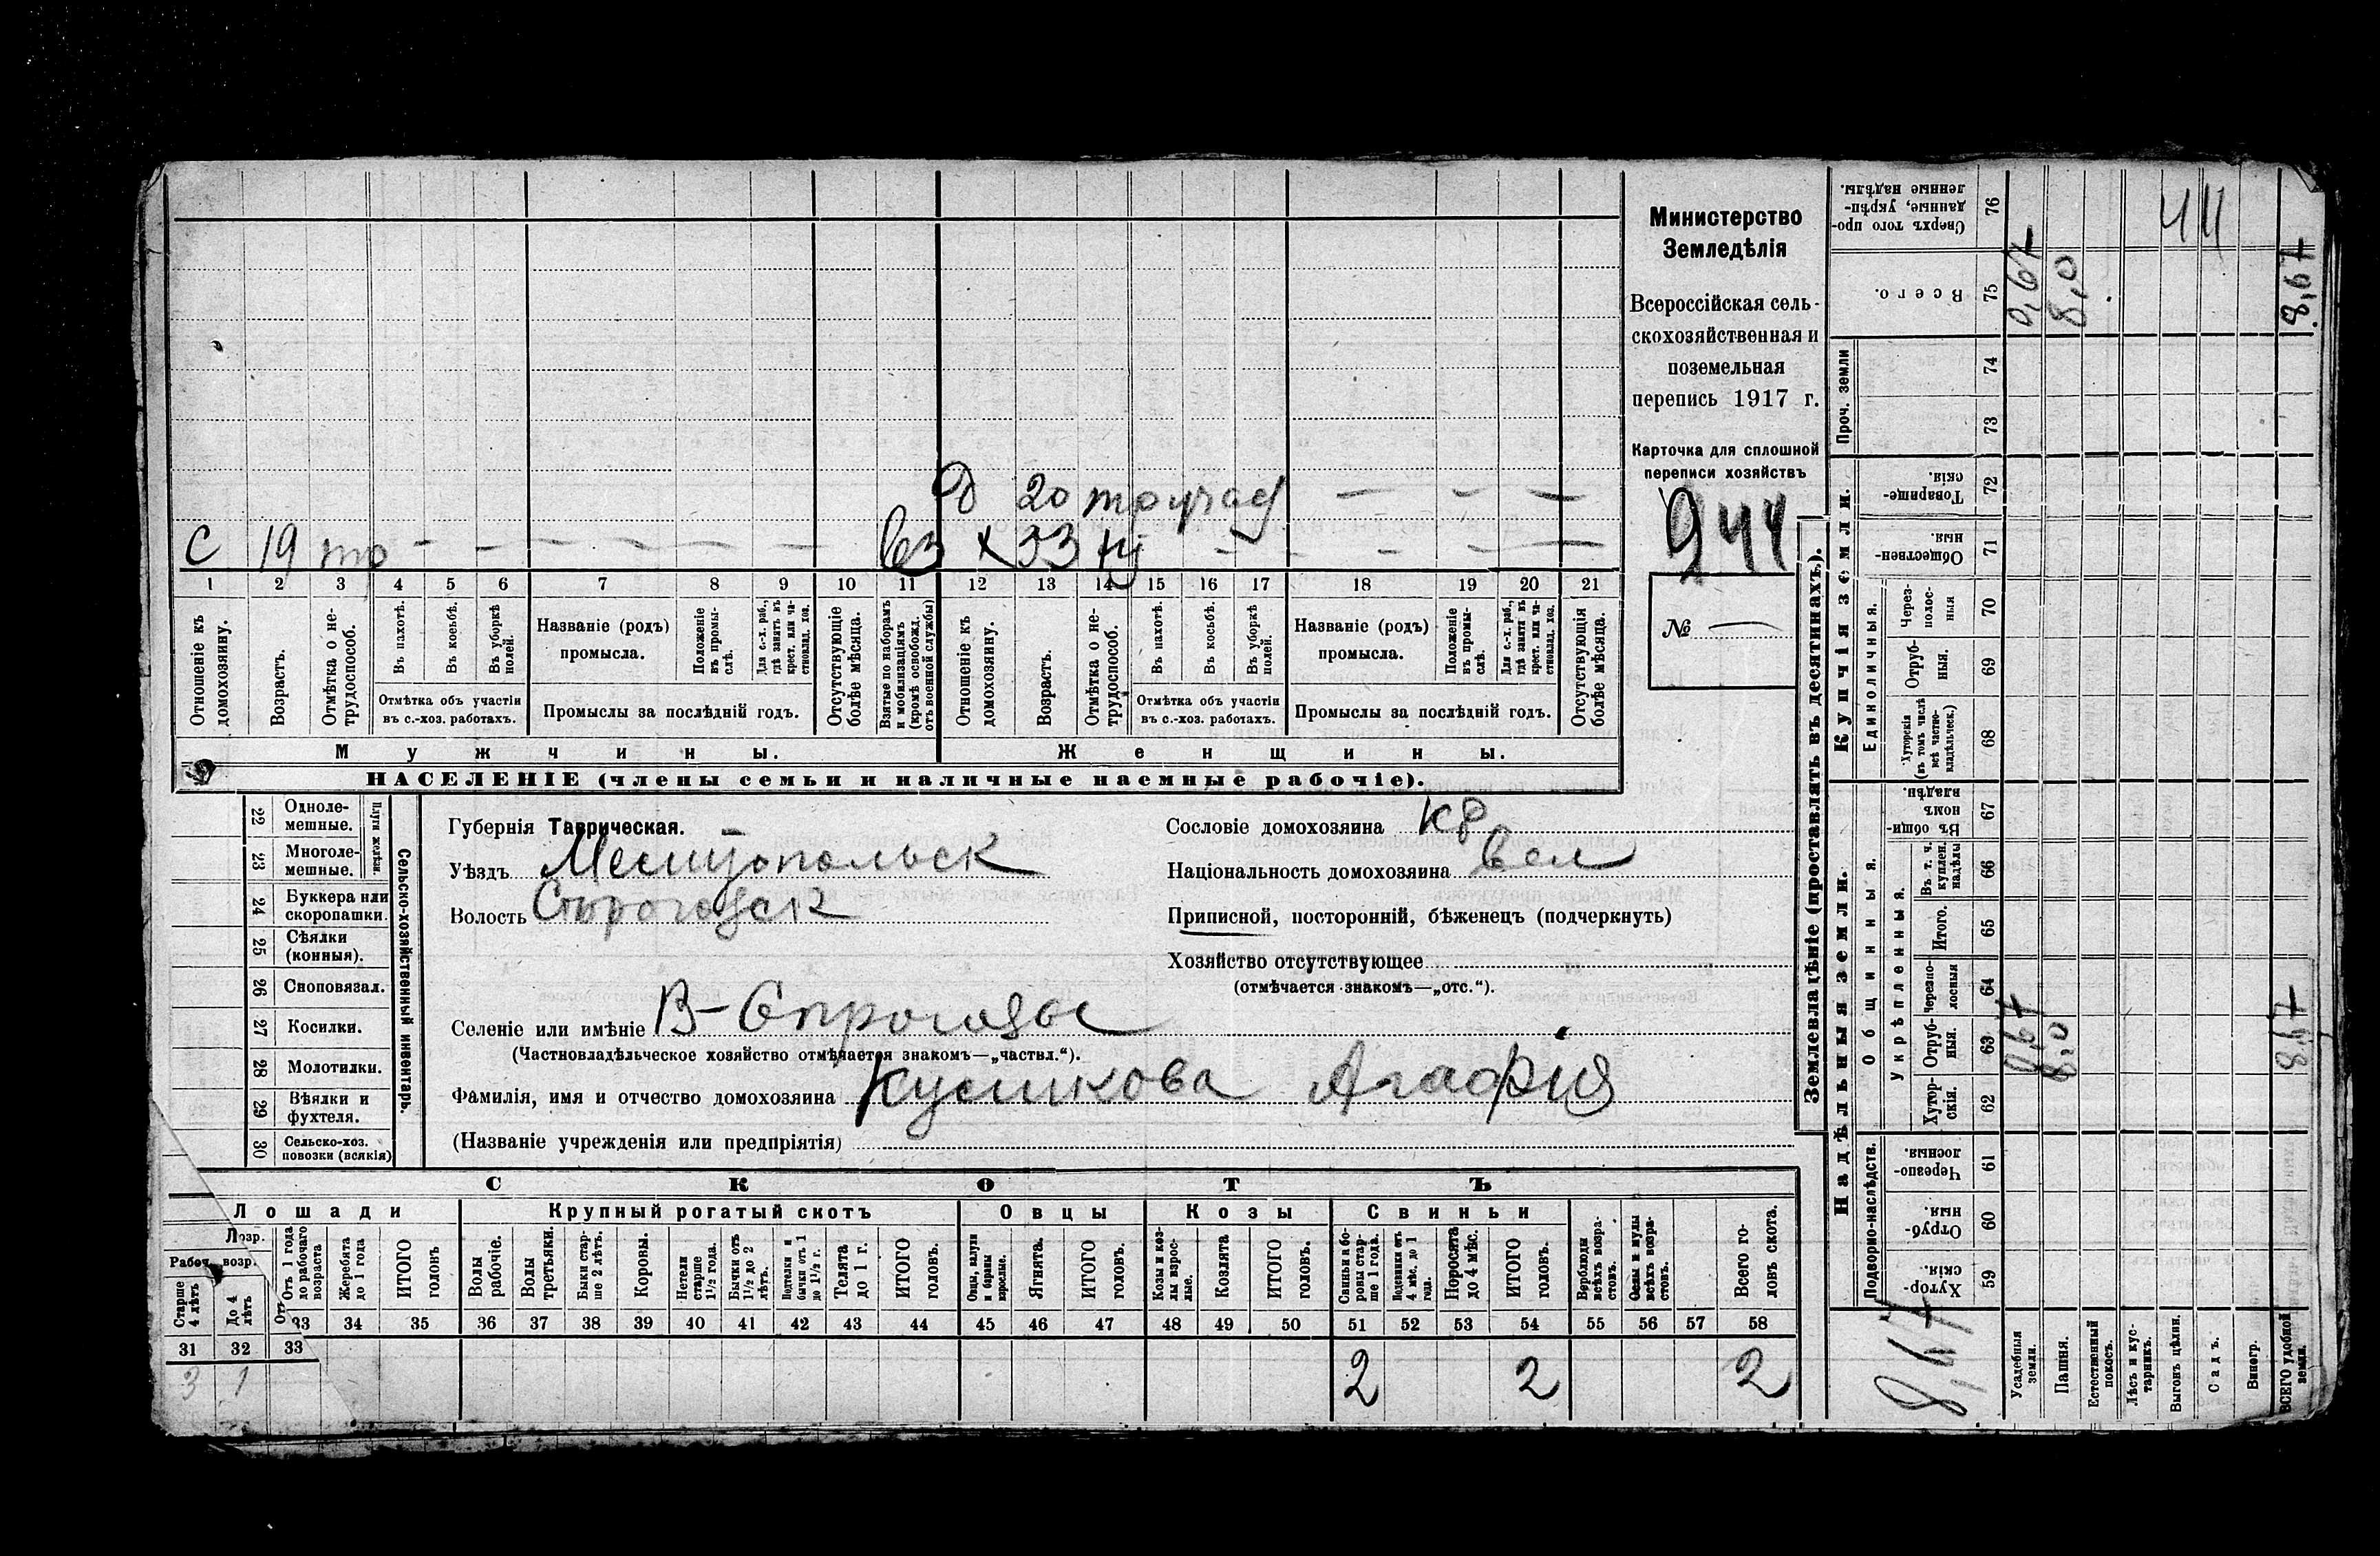 Министерство
Земледѣлія
Всероссійская сель-
скохозяйственная и
поземельная
перепись 1917 г.
Карточка для сплошной
переписи хозяйствъ
944
№ —
д 20 — — —
С 19 то — — — — — — вз х 33 — — — — —
1 2 3 4 5 6 7 8 9 10 11 12 13 14 15 16 17 18 19 20 21
Отношеніе къ домохозяину.
Возрастъ.
Отмѣтка о не-трудоспособ.
Въ пахотѣ.
Въ косьбѣ.
Въ уборкѣ полей.
Отмѣтка объ участіи
въ с.-хоз. работахъ.
Названіе (родъ)
промысла.
Положеніе въ промы-слѣ.
Для с.-х. раб., гдѣ занятъ въ крест. или ча-стновлад. хоз.
Промыслы за послѣдній годъ.
Отсутствующіе болѣе мѣсяца.
Взятые по наборамъ и мобилизаціямъ (кромѣ освобожд. отъ военной службы)
Отношеніе къ домохозяину.
Возрастъ.
Отмѣтка о не-трудоспособ.
Въ пахотѣ.
Въ косьбѣ.
Въ уборкѣ полей.
Отмѣтка объ участіи
въ с.-хоз. работахъ.
Названіе (родъ)
промысла.
Положеніе въ промы-слѣ.
Для с.-х. раб., гдѣ заняты въ крест. или ча-стновлад. хоз.
Промыслы за послѣдній годъ.
Отсутствующія болѣе мѣсяца.
Мужчины. Женщины.
НАСЕЛЕНІЕ (члены семьи и наличные наемные рабочіе).
Сельско-хозяйственный инвентарь.
Плуги желѣзн.
22 Одноле-мешные.
23 Многоле-мешные.
24 Буккера или скоропашки.
25 Сѣялки (конныя).
26 Сноповязал.
27 Косилки.
28 Молотилки.
29 Вѣялки и фухтеля.
30 Сельско-хоз. повозки (всякія)
Губернія Таврическая.
Уѣздъ Мелитопольск
Волость
Селеніе или имѣніе В-
(Частновладѣльческое хозяйство отмѣчается знакомъ—„частвл.“).
Фамилія, имя и отчество домохозяина Кусикова Агафія
(Названіе учрежденія или предпріятія)
Сословіе домохозяина кр
Національность домохозяина вел
Приписной, посторонній, бѣженецъ (подчеркнуть)
Хозяйство отсутствующее
(отмѣчается знакомъ—„отс.“).
СКОТЪ
Лошади Крупный рогатый скотъ Овцы Козы Свиньи
Старше 4 лѣтъ
До 4 лѣтъ
Отъ 1 года до рабочаго возраста
Жеребята до 1 года
ИТОГО головъ
Волы рабочіе.
Волы третьяки.
Быки стар-ше 2 лѣтъ.
Коровы.
Нетели старше 1½ года.
Бычки отъ 1½ до 2 лѣтъ.
Подтелки и бычки отъ 1 до 1½ г.
Телята до 1 г.
ИТОГО головъ.
Овцы, валухи и бараны взрослые.
Ягнята.
ИТОГО головъ.
Козы и коз-лы взрос-лые.
Козлята
ИТОГО головъ.
Свиньи и бо-ровы стар-ше 1 года.
Подсвинки отъ 4 мѣс. до 1 года.
Поросята до 4 мѣс.
ИТОГО головъ.
Верблюды всѣхъ возра-стовъ.
Ослы и мулы всѣхъ возра-стовъ.
Всего го-ловъ скота.
33 34 35 36 37 38 39 40 41 42 43 44 45 46 47 48 49 50 51 52 53 54 55 56 57 58
31 32 33
3 1 2 2 2
Землевладѣніе (проставлять въ десятинахъ).
Надѣльныя земли. Купчія земли. Проч. земли
Подворно-наслѣдств.
Общинныя.
Укрѣпленныя.
Единоличныя.
59 Хутор-скія.
60 Отруб-ныя.
61 Черезпо-лосныя.
62 Хутор-скія.
63 Отруб-ныя.
64 Черезпо-лосныя
65 Итого.
66 Въ т. ч. куплен. надѣлы
67 Въ общи-номъ владѣн.
68 Хуторскія (въ томъ числѣ всѣ частно-владѣльческ.)
69 Отруб-ныя.
70 Через-полос-ныя
71 Обществен-ныя.
72 Товарище-скія.
73
74
75 Всего.
76 Сверхъ того про-данные, укрѣп-ленные надѣлы.
Усадебныя земли.
Пашня.
Естественный покосъ.
Лѣсъ и кус-тарникъ.
Выгонъ цѣлин.
Садъ.
Виногр.
ВСЕГО удобной земли.
8,67
0,67 0,67
8,0 8,0
8,67 8,67